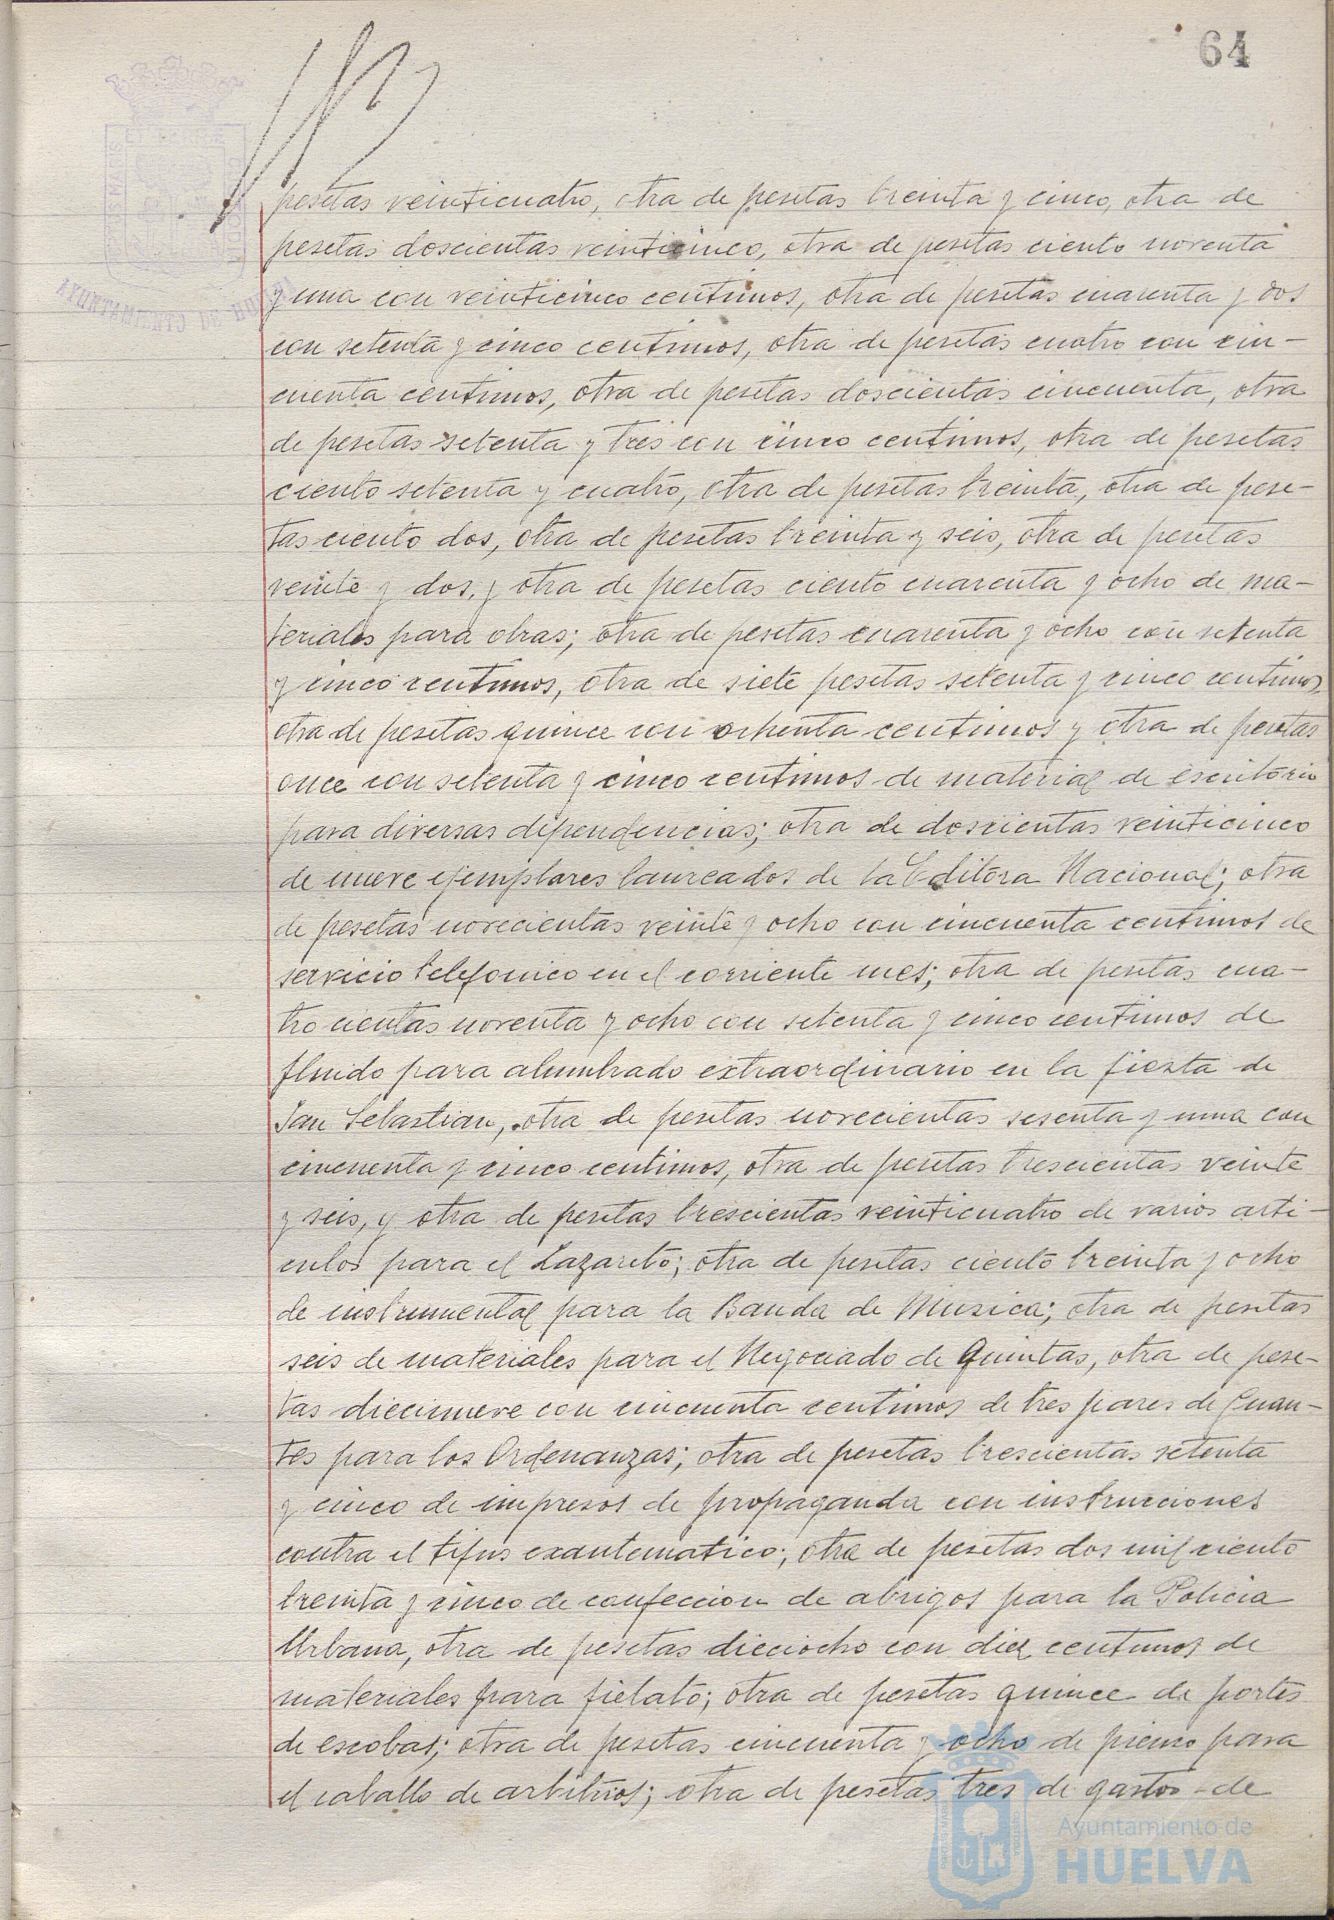 64
pesetas veinticuatro, otra de pesetas treinta y cinco, otra de
pesetas doscientas veinticinco, otra de pesetas ciento noventa
y una con veinticinco centimos, otra de pesetas cuarenta y dos
con setenta y cinco centimos, otra de pesetas cuatro con cin-
cuenta centimos, otra de pesetas doscientas cincuenta, otra
de pesetas setenta y tres con cinco centimos, otra de pesetas
ciento setenta y cuatro, otra de pesetas treinta, otra de pese-
tas ciento dos, otra de pesetas treinta y seis, otra de pesetas
veinte y dos, y otra de pesetas ciento cuarenta y ocho de ma-
teriales para obras; otra de pesetas cuarenta y ocho con setenta
y cinco centimos, otra de siete pesetas setenta y cinco centimos,
otra de pesetas quince con ochenta centimos y otra de pesetas
once con setenta y cinco centimos de material de escritorio
para diversas dependencias; otra de doscientas veinticinco
de nueve ejemplares laureados de la Editora Nacional; otra
de pesetas novecientas veinte y ocho con cincuenta centimos de
servicio telefonico en el corriente mes; otra de pesetas cua-
trocientas noventa y ocho con setenta y cinco centimos de
fluido para alumbrado extraordinario en la fiesta de
San Sebastian, otra de pesetas novecientas sesenta y una con
cincuenta y cinco centimos, otra de pesetas trescientas veinte
y seis, y otra de pesetas trescientas veinticuatro de varios arti-
culos para el Lazareto; otra de pesetas ciento treinta y ocho
de instrumental para la Banda de Musica; otra de pesetas
seis de materiales para el Negociado de Quintas, otra de pese-
tas diecinueve con cincuenta centimos de tres pares de Guan-
tes para los Ordenanzas; otra de pesetas trescientas setenta
y cinco de impresos de propaganda con instrucciones
contra el tifus exantematico; otra de pesetas dos mil ciento
treinta y cinco de confeccion de abrigos para la Policia
Urbana, otra de pesetas dieciocho con diez centimos de
materiales para fielato; otra de pesetas quince de portes
de escobas; otra de pesetas cincuenta y ocho de pienso para
el caballo de arbitrios; otra de pesetas tres de gastos de
Ayuntamiento de
HUELVA